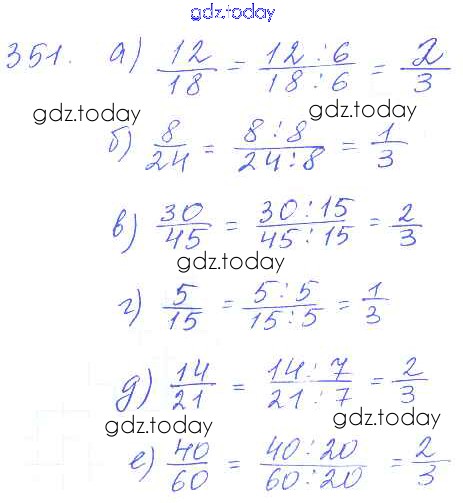 gdz.today
351. а) 12/18 = 12:6/18:6 = 2/3
gdz.today gdz.today
б) 8/24 = 8:8/24:8 = 1/3
в) 30/45 = 30:15/45:15 = 2/3
gdz.today
г) 5/15 = 5:5/15:5 = 1/3
д) 14/21 = 14:7/21:7 = 2/3
gdz.today gdz.today
е) 40/60 = 40:20/60:20 = 2/3